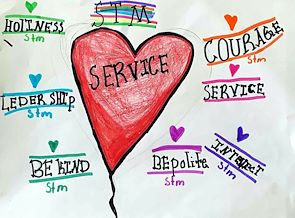 STM
HOLINESS
Stm
COURAGE
Stm
SERVICE
LEDER SHIP
Stm
SERVICE
Stm
BE KIND
Stm
BEpolite
Stm
Stm